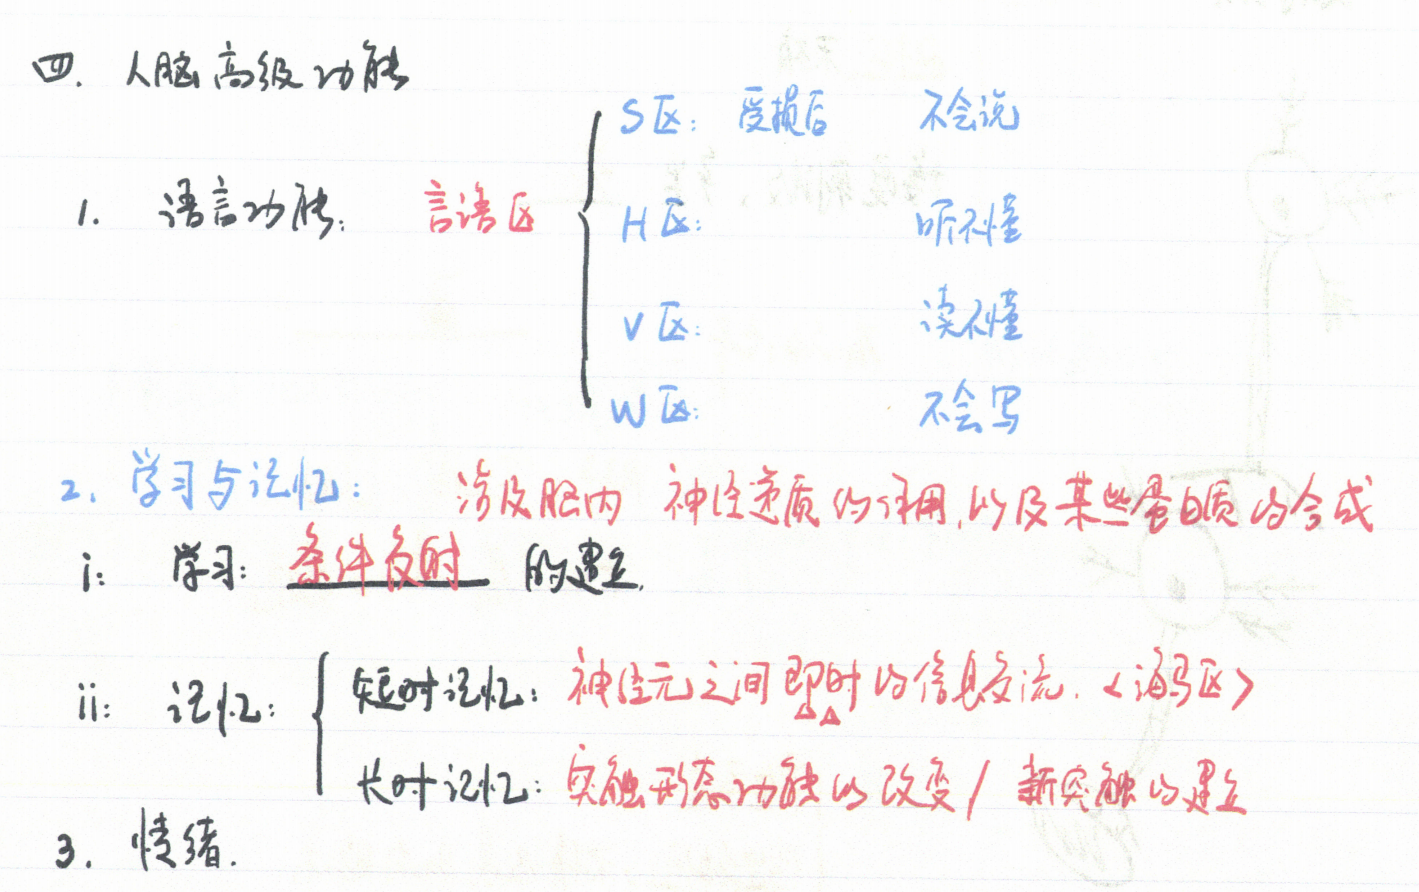 四. 人脑高级功能
S区: 受损后 不会说
1. 语言功能: 言语区
H区: 听不懂
V区: 读不懂
W区: 不会写
2. 学习与记忆: 涉及脑内 神经递质的作用,以及某些蛋白质的合成
i: 学习: 条件反射 的建立.
ii: 记忆: 短时记忆: 神经元之间即时的信息交流. <海马区>
长时记忆: 突触形态功能的改变/ 新突触的建立
3. 情绪.